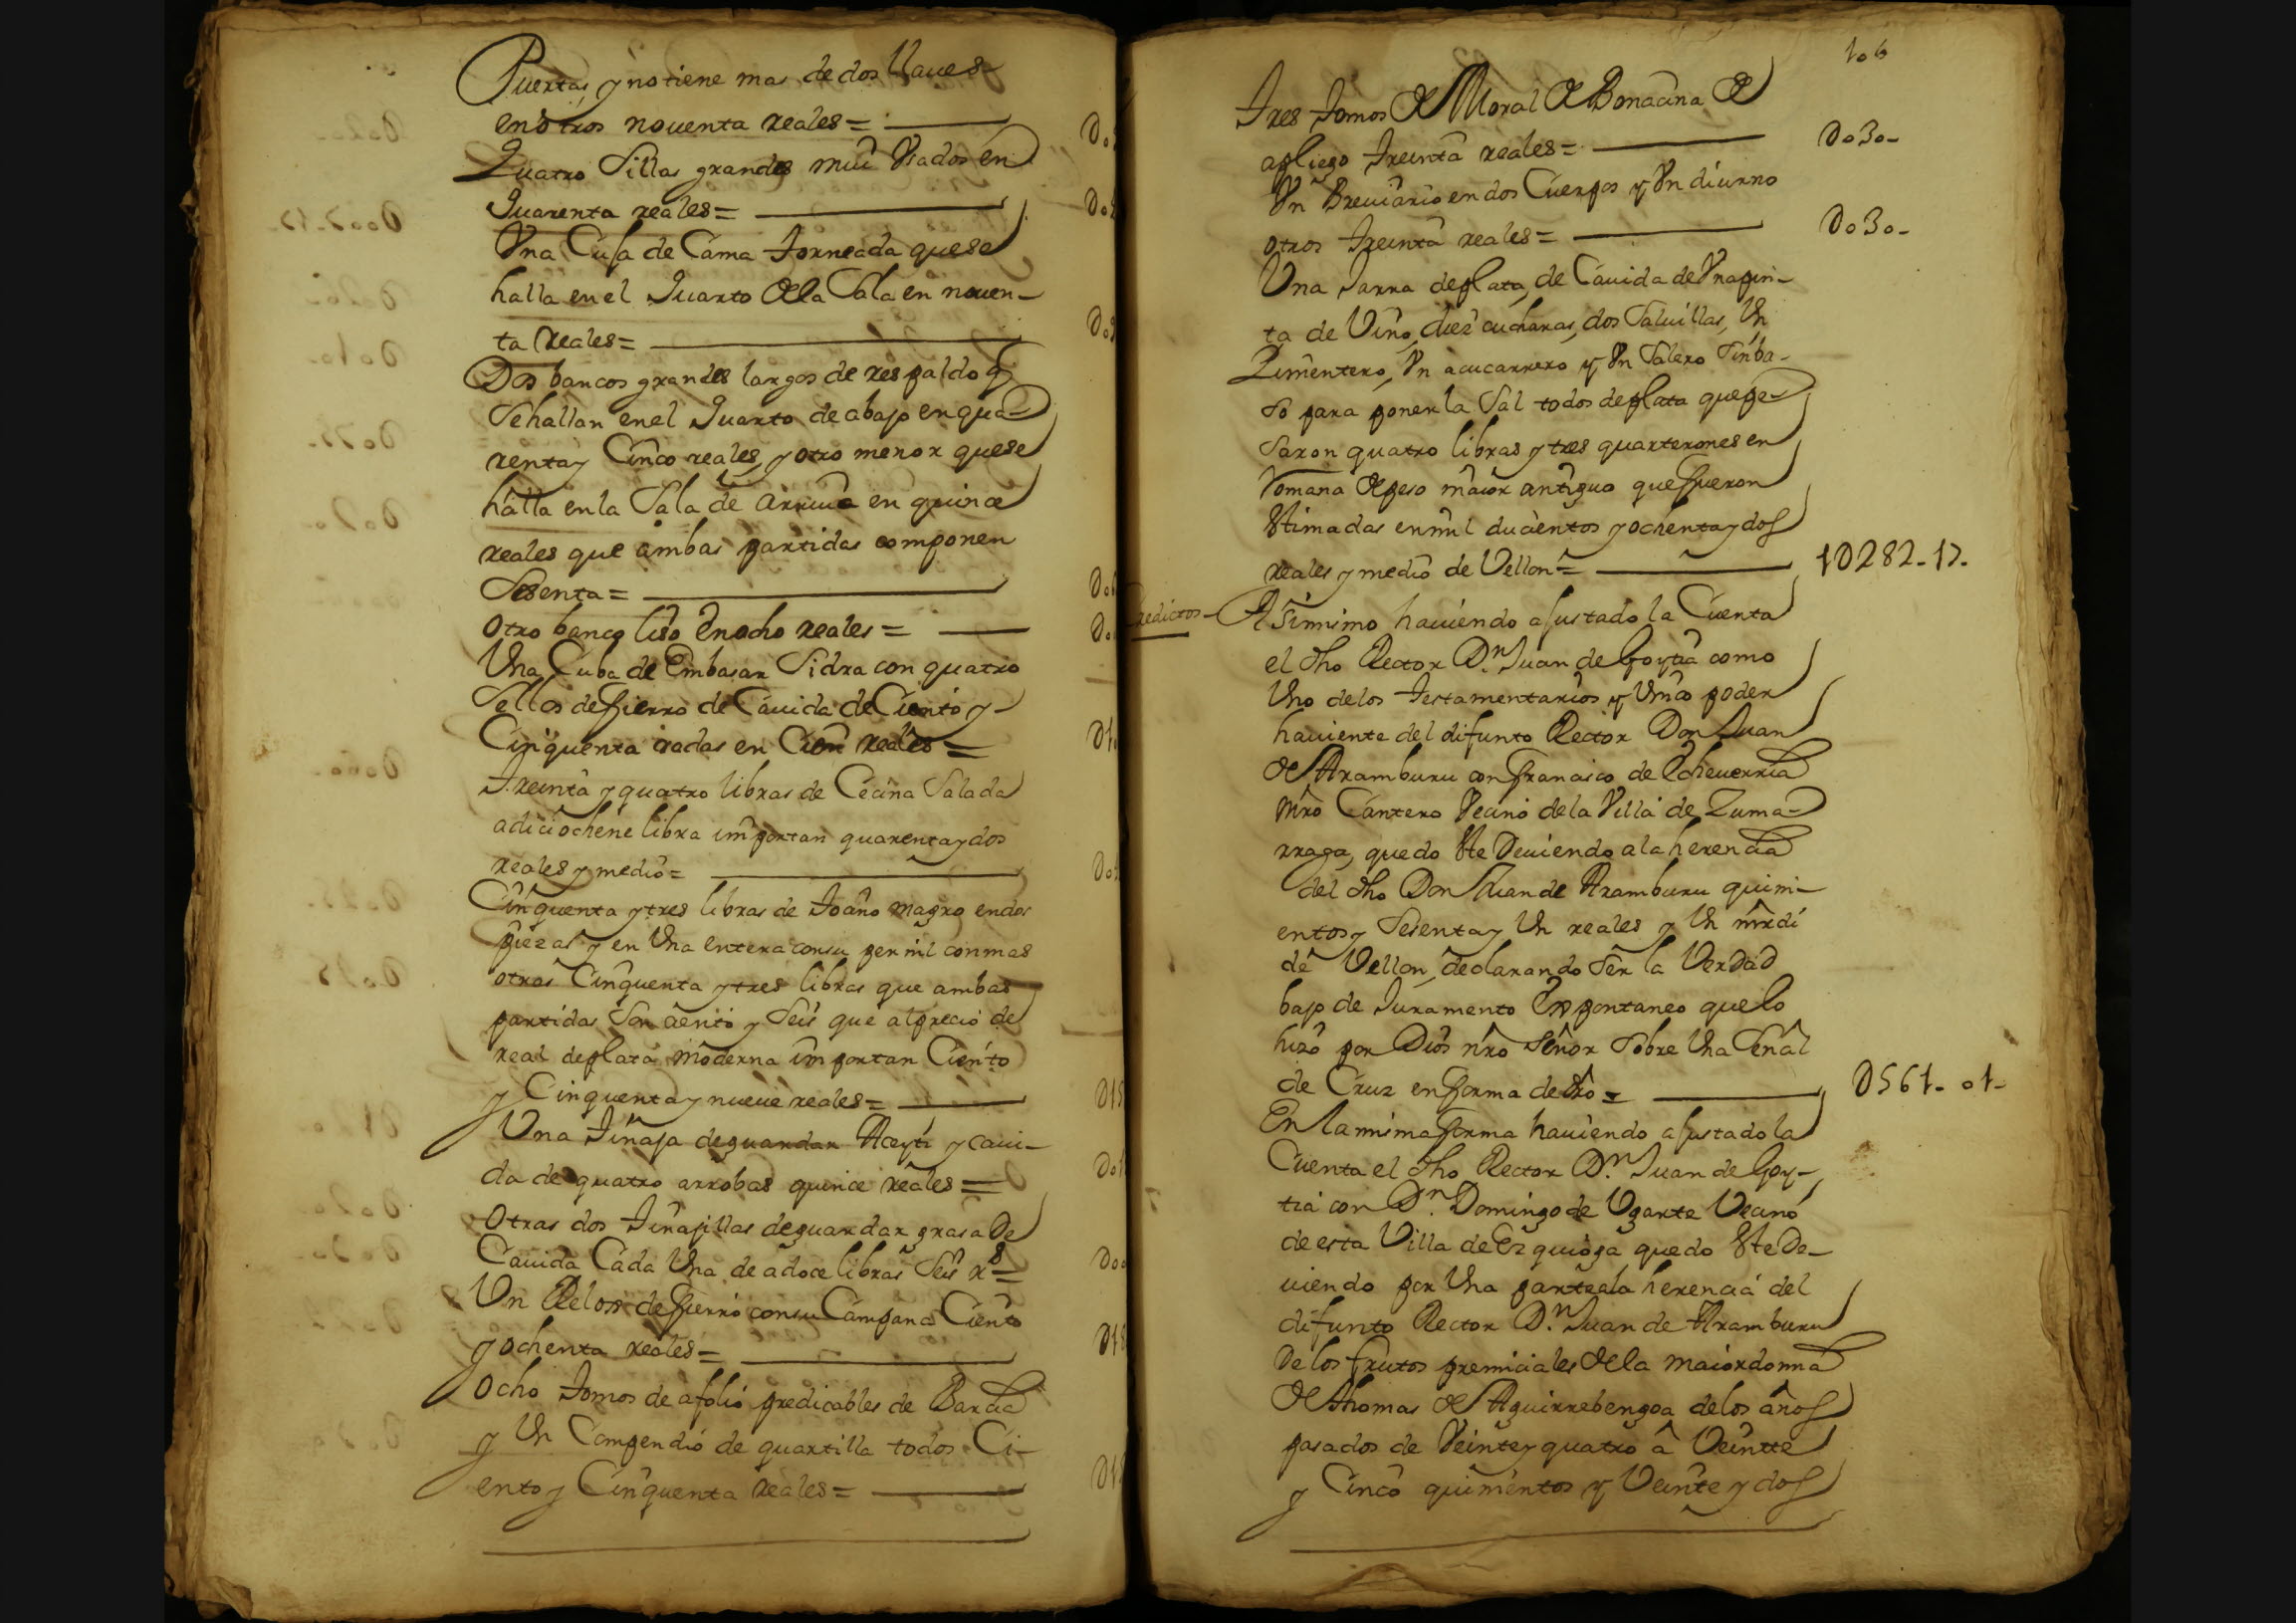 Puertas, y no tiene mas de dos llaues
en otros nouenta reales =
Quatro Sillas grandes mui Vsados en
Quarenta reales =
Vna Cuja de Cama torneada que se
halla en el Quarto de la Sala en nouen-
ta reales =
Dos bancos grandes largos de respaldo q
se hallan en el Quarto de abajo en qua-
renta y Cinco reales, y otro menor que se
halla en la Sala de arriua en quince
reales que ambas partidas componen
Sesenta =
otro banco liso en ocho reales =
Vna Cuba de Embasar Sidra con quatro
Sellos de fierro de Cauida de Ciento y
Cinquenta cadas en Cien reales =
Treinta y quatro libras de Cecina Salada
a diciochene libra importan quarenta y dos
reales y medio =
Cinquenta y tres libras de Tocino magro en dos
piezas y en Vna entera con su pernil con mas
otras Cinquenta y tres libras que ambas
partidas son ciento y Seis que al precio de
real de plata moderna importan Ciento
y Cinquenta y nueue reales =
Vna Tinaja de guardar Aceyte y caui-
da de quatro arrobas quince reales =
Otras dos Tinajillas de guardar grasa de
Cauida Cada Vna de a doce libras Seis rs =
Vn Relox de fierro con su Campana Ciento
y ochenta reales =
ocho Tomos de a folio predicables de Barcia
y Vn Compendio de quartilla todos Ci-
ento y Cinquenta reales =
106
Tres Tomos de Moral de Bonacina de
a pliego Treinta reales = D030-
Vn Breuiario en dos Cuerpos y Vn diurno
otros Treinta reales = D030-
Una Jarra de plata, de Cauida de Vna pin-
ta de Vino, diez cucharas, dos Saluillas, Vn
Pimentero, Vn acucarrero y Vn Salero Sin ba-
so para poner la Sal todos de plata que pe-
saron quatro libras y tres quarterones en
Romana de peso maior antiguo que fueron
Stimadas en mil ducientos y ochenta y dos
reales y medio de Vellon = 1D282-17-
Redictos - Asimismo hauiendo ajustado la Cuenta
el dho Rector Dn. Juan de Goytia como
Vno de los Testamentarios y Vnico poder
hauiente del difunto Rector Don Juan
de Aramburu con Francisco de Echeuerria
Mro Cantero Vecino de la Villa de Zuma-
rraga, quedo Ste Deuiendo a la herencia
del dho Don Juan de Aramburu quini-
entos y Sesenta y Vn reales y Vn mrdi
de Vellon, declarando Ser la Verdad
bajo de Juramento Expontaneo que lo
hizo por Dios nro Señor Sobre Vna Señal
de Cruz en forma de dro = D561-01-
En la misma forma hauiendo ajustado la
Cuenta el dho Rector Dn. Juan de Goy-
tia con Dn. Domingo de Vgarte Vecino
de esta Villa de Ezquioga quedo Ste De-
uiendo por Vna parte a la herencia del
difunto Rector Dn. Juan de Aramburu
de los frutos premiciales de la maiordomia
de Thomas de Aguirrebengoa de los años
pasados de Veinte y quatro â Veintte
y Cinco quinientos y Veinte y dos